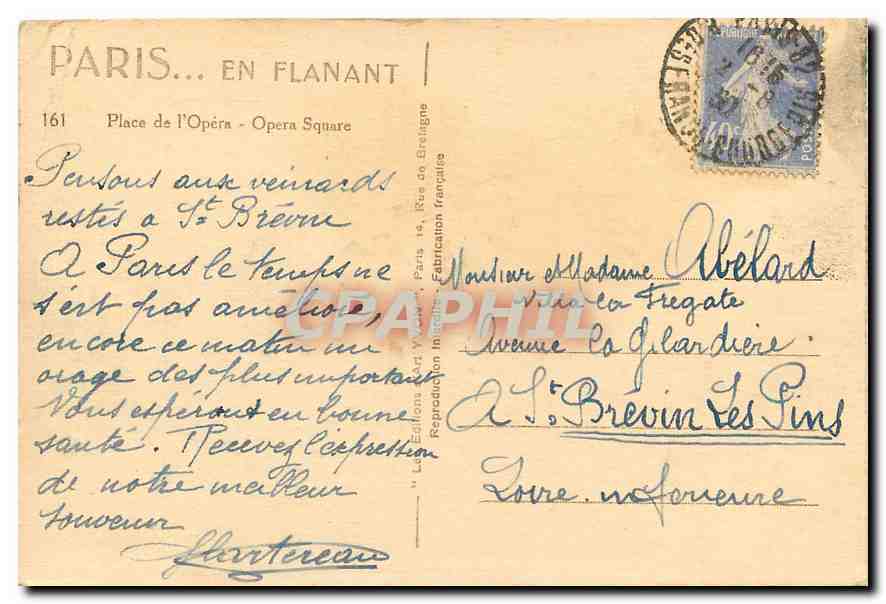 PARIS... EN FLANANT
161 Place de l'Opéra - Opera Square
Pensons aux veinards
restés a St Brévin
A Paris le temps ne
s'est pas amélioré,
encore ce matin un
orage des plus important
Vous espérons en bonne
santé. Recevez l'expression
de notre meilleur
souvenir
" Les Editions d'Art YVON ", Paris 14, Rue de Bretagne
Reproduction Interdite - Fabrication française
REPUBLIQUE
40c
POSTES
Monsieur et Madame Abélard
Villa La Frégate
Avenue la Gilardière
A St Brévin Les Pins
Loire-inférieure
CPAPHIL